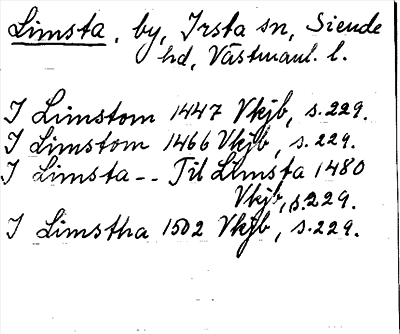 Limsta, by, Irsta sn, Siende
hd, Västmanl. l.
I Limstom 1447 Vkjb, s. 229.
I Limstom 1466 Vkjb, s. 229.
I Limsta -- Til Limsta 1480
Vkjb, s. 229.
I Limstha 1502 Vkjb, s. 229.